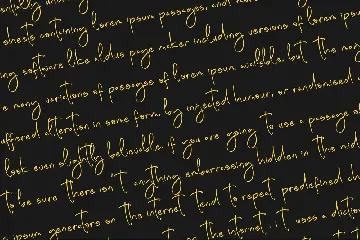 passages, and
sheets containing lorem ipsum passages, and mor
ng software like aldus page maker including versions of lorem ips
e many variations of passages of lorem ipsum available, but the maj
uffered alteration in some form, by injected humour, or randomised
look even slightly believable. if you are going to use a passage o
to be sure there isn't anything embarrassing hidden in the mid
ipsum generators on the internet tend to repeat predefined ch
the internet. it uses a dictio